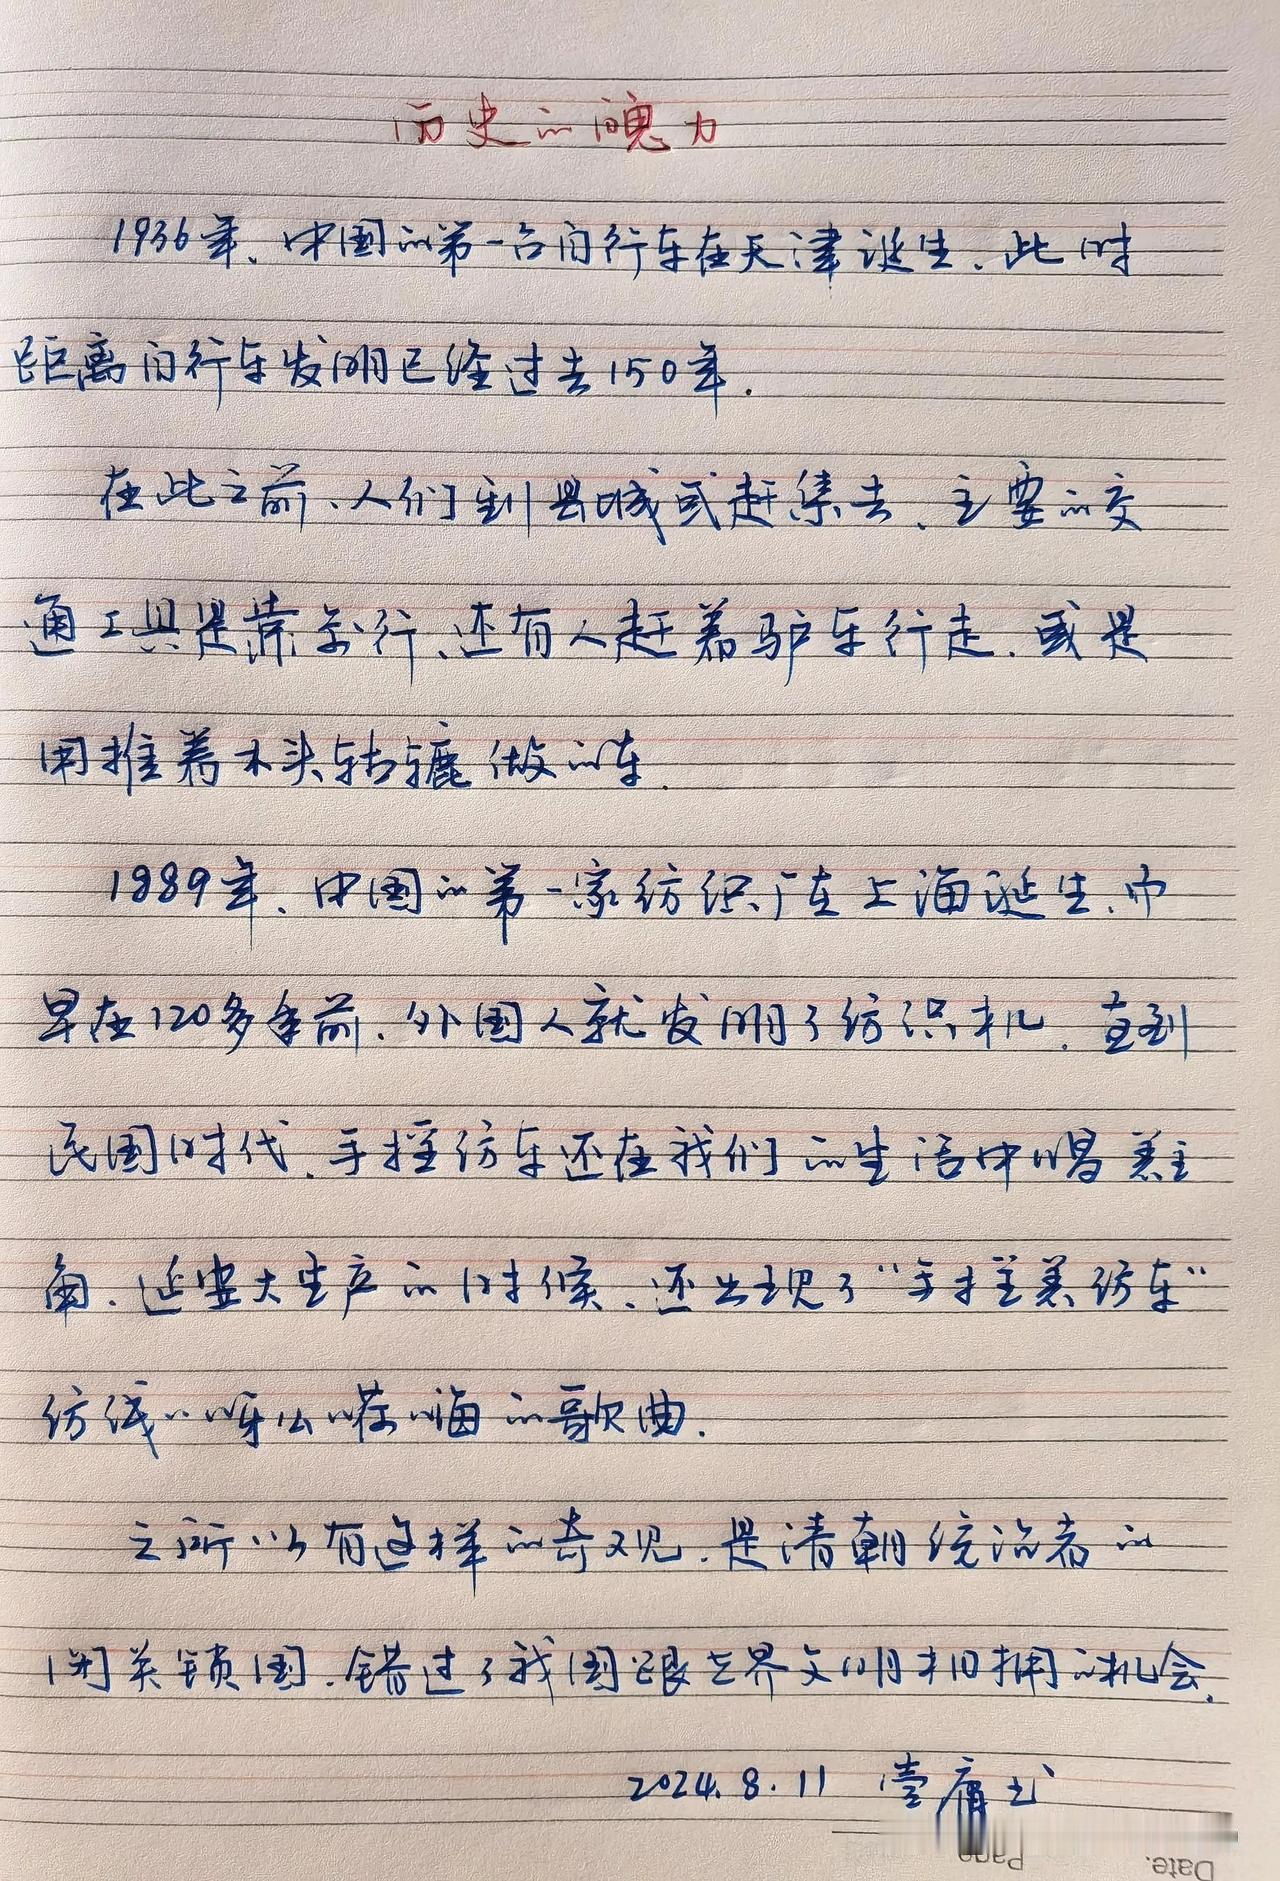 历史的魄力
1936年、中国的第一台自行车在天津诞生、此时
距离自行车发明已经过去150年.
在此之前、人们到县城或赶集去、主要的交
通工具是靠步行、还有人赶着驴车行走、或是
用推着木头轱辘做的车.
1889年、中国的第一家纺织厂在上海诞生、而
早在120多年前、外国人就发明了纺织机、直到
民国时代、手摇纺车还在我们的生活中唱着主
角、延安大生产的时候、还出现了“手摇着纺车”
纺线以呀么嗬嗨的歌曲.
之所以有这样的奇观、是清朝统治者的
闭关锁国、错过了我国跟世界文明相拥的机会.
2024.8.11
Page
Date.